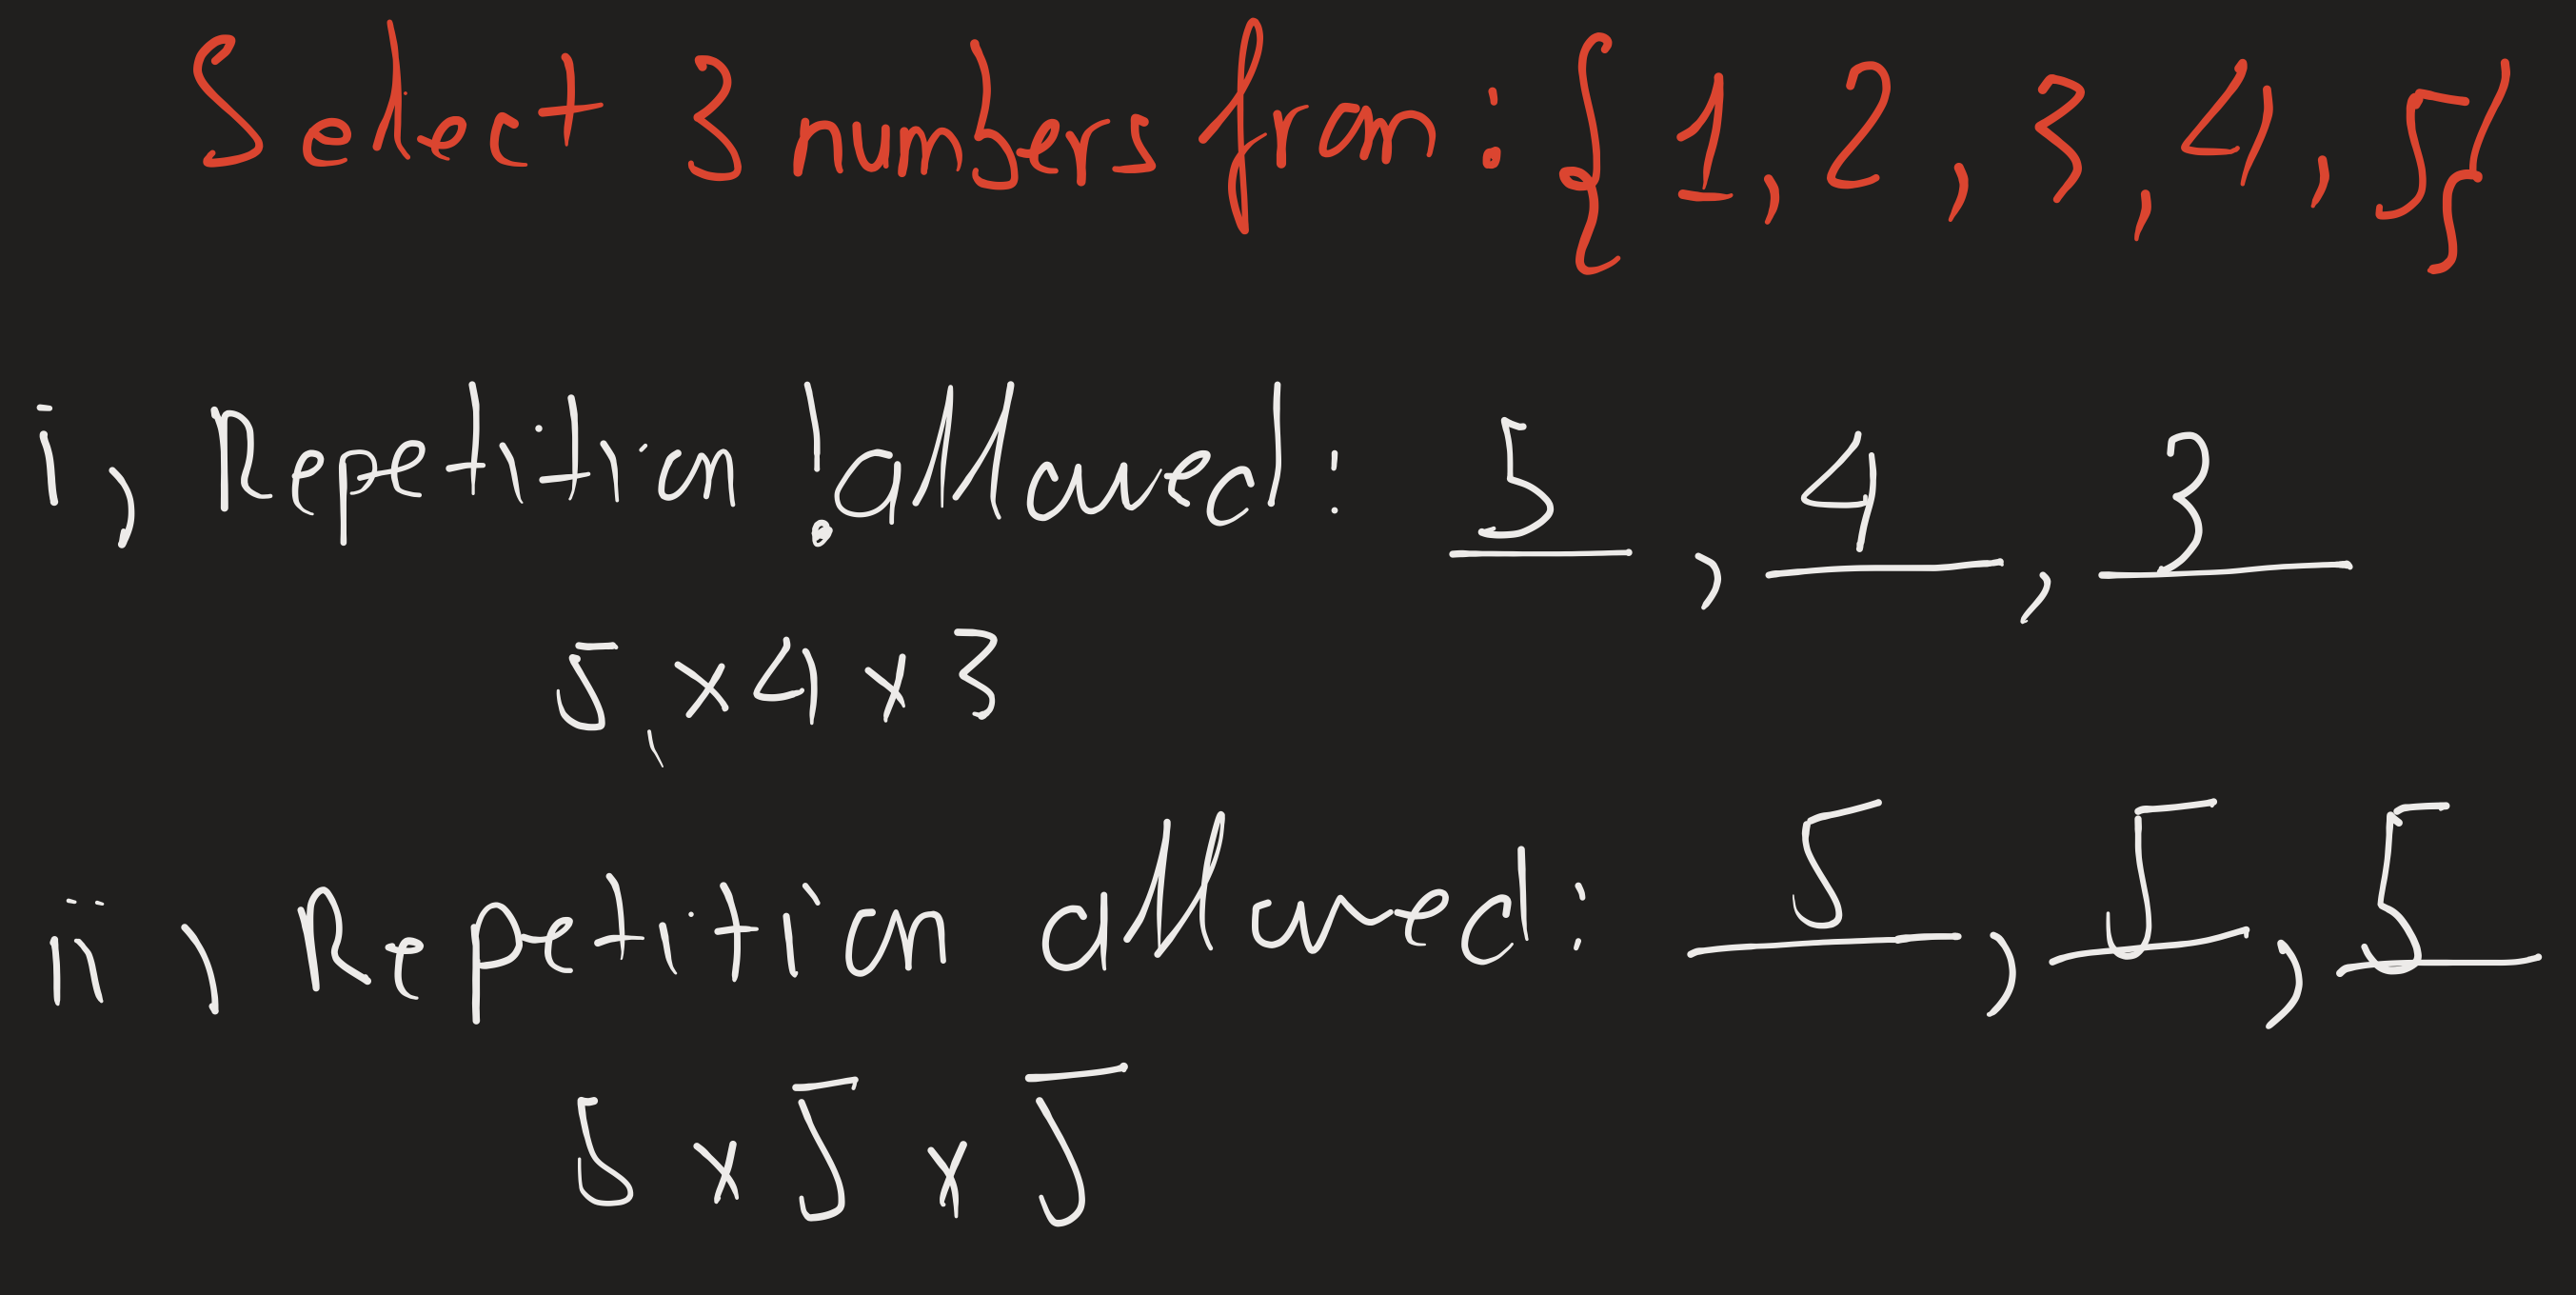 Select 3 numbers from: {1, 2, 3, 4, 5}
i, Repetition !allowed: 5, 4, 3
5 x 4 x 3
ii, Repetition allowed: 5, 5, 5
5 x 5 x 5